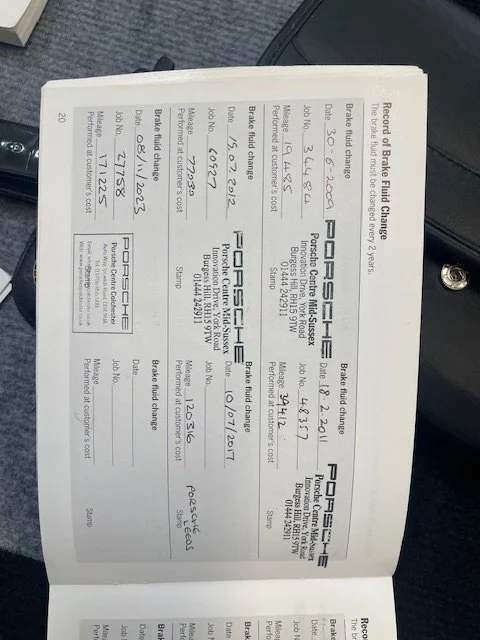 Record of Brake Fluid Change
The brake fluid must be changed every 2 years.
Brake fluid change
Date 30-6-2009
Job No. 34484
Mileage 19485
Performed at customer's cost
PORSCHE
Porsche Centre Mid-Sussex
Innovation Drive, York Road
Burgess Hill, RH15 9TW
01444 242911
Brake fluid change
Date 18.2.2011
Job No. 48357
Mileage 39412
Performed at customer's cost
PORSCHE
Porsche Centre Mid-Sussex
Innovation Drive, York Road
Burgess Hill, RH15 9TW
01444 242911
Stamp
Brake fluid change
Date 19.07.2012
Job No. 60927
Mileage 77030
Performed at customer's cost
PORSCHE
Porsche Centre Mid-Sussex
Innovation Drive, York Road
Burgess Hill, RH15 9TW
01444 242911
Stamp
Brake fluid change
Date 10/07/2017
Job No.
Mileage 120316
Performed at customer's cost
PORSCHE
LEEDS
Stamp
Brake fluid change
Date 08/11/2023
Job No. 27758
Mileage 171225
Performed at customer's cost
PORSCHE
Porsche Centre Colchester
Stamp
Brake fluid change
Date
Job No.
Mileage
Performed at customer's cost
Stamp
20